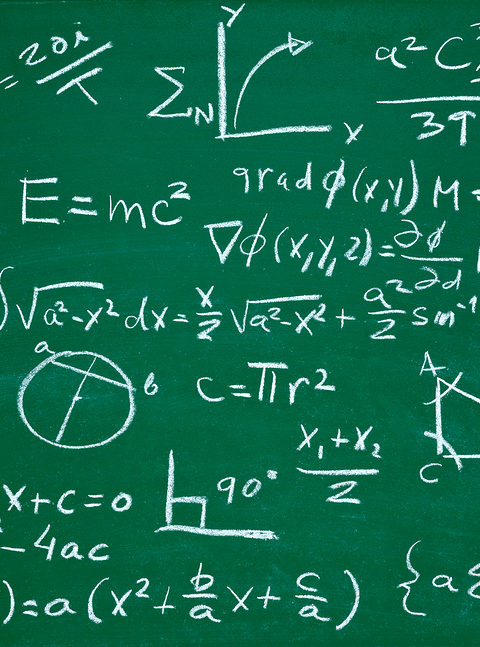 = 20i / τ
Y
∑N
X
a² C
3T
E=mc²
grad ϕ(x,y) M
∇ϕ(x,y,z)=∂ϕ/∂d
∫√a²-x² dx = x/2 √a²-x² + a²/2 sin⁻¹
a
b
c=πr²
A
C
x₁+x₂/2
x+c=0
90°
-4ac
)=a(x²+b/a x+c/a)
{a